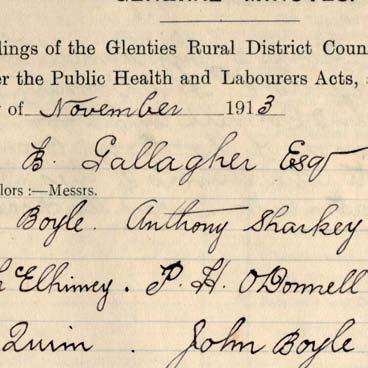 GENERAL MINUTES.
dings of the Glenties Rural District Coun
er the Public Health and Labourers Acts,
y of November 1913
B. Gallagher Esqr
lors :—Messrs.
Boyle. Anthony Sharkey
McElhiney. P. H. O'Donnell
Quinn. John Boyle